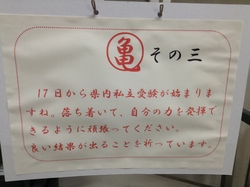 亀 その三
17日から県内私立受験が始まりま
すね。落ち着いて、自分の力を発揮で
きるように頑張ってください。
良い結果が出ることを祈っています。